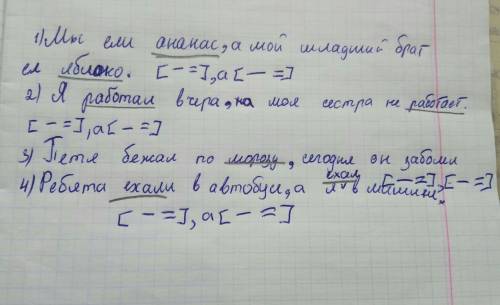 1) Мы ели ананас, а мой младший брат
ел яблоко. [— =], а [— =]
2) Я работал вчера, на моя сестра не работает.
[— =], а [— =]
3) Петя бежал по морозу, сегодня он заболи
ехал [— =], [— =]
4) Ребята ехали в автобус, а я в машине.
[— =], а [— =]